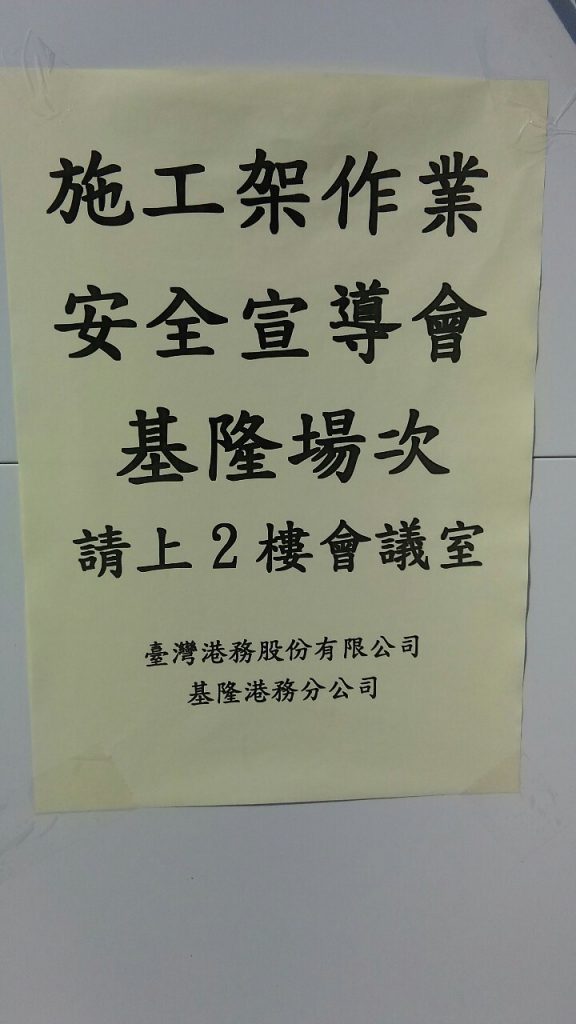 施工架作業
安全宣導會
基隆場次
請上2樓會議室
臺灣港務股份有限公司
基隆港務分公司